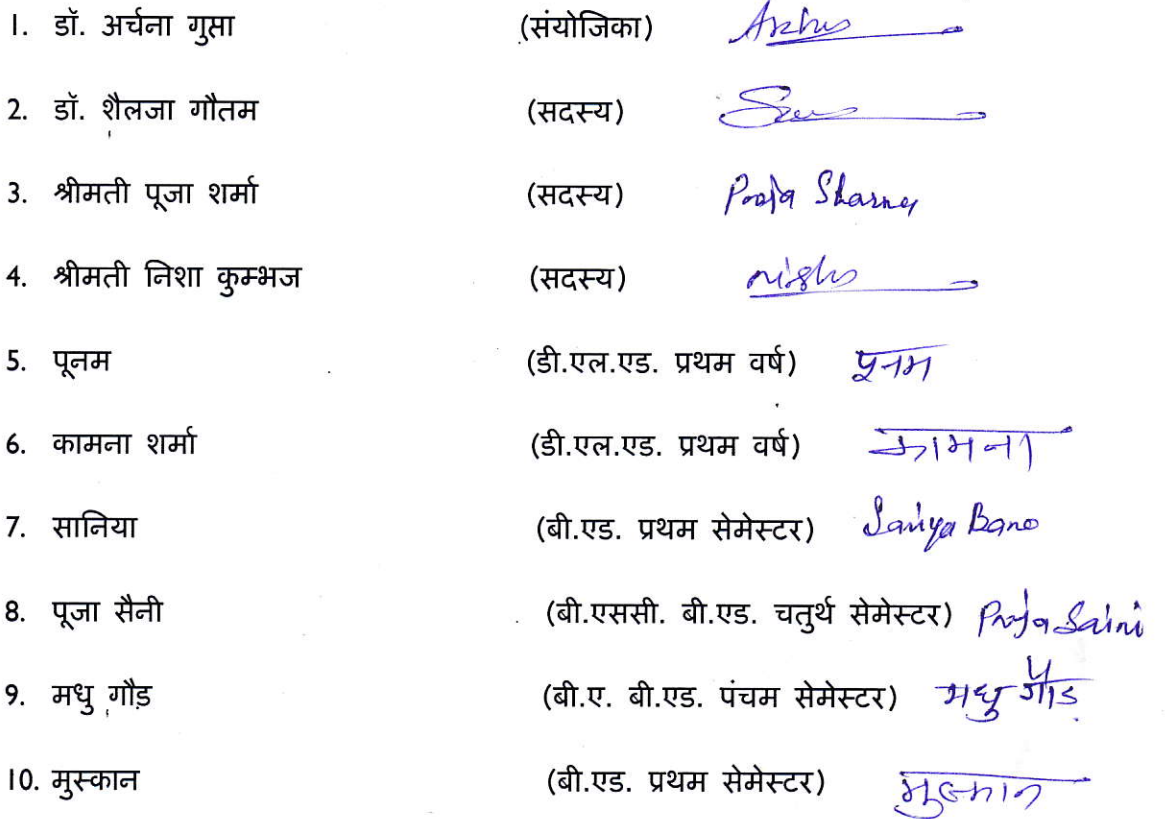 1. डॉ. अर्चना गुप्ता (संयोजिका)
2. डॉ. शैलजा गौतम (सदस्य)
3. श्रीमती पूजा शर्मा (सदस्य) Pooja Sharma
4. श्रीमती निशा कुम्भज (सदस्य) nisha
5. पूनम (डी.एल.एड. प्रथम वर्ष) पूनम
6. कामना शर्मा (डी.एल.एड. प्रथम वर्ष) कामना
7. सानिया (बी.एड. प्रथम सेमेस्टर) Saniya Bano
8. पूजा सैनी (बी.एससी. बी.एड. चतुर्थ सेमेस्टर) Pooja Saini
9. मधु गौड़ (बी.ए. बी.एड. पंचम सेमेस्टर) मधु गौड
10. मुस्कान (बी.एड. प्रथम सेमेस्टर) मुस्कान